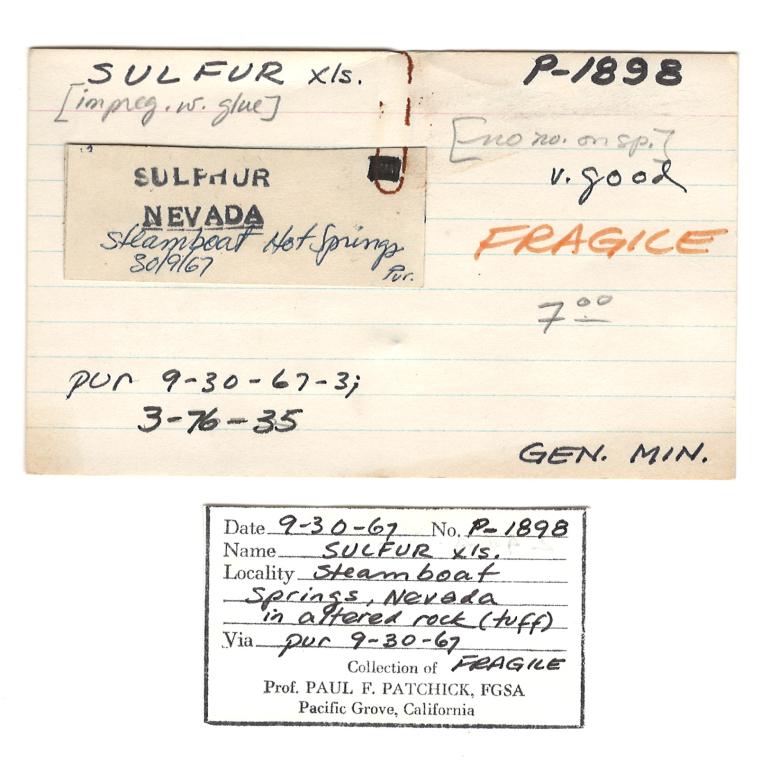 SULFUR xls.
P-1898
[impreg. w. glue]
[no no. on sp.]
v. good
SULPHUR
NEVADA
Steamboat Hot Springs
30/9/67
Pur.
FRAGILE
7.00
pur 9-30-67-3;
3-76-35
GEN. MIN.
Date 9-30-67 No. P-1898
Name SULFUR xls.
Locality Steamboat
Springs, Nevada
in altered rock (tuff)
Via pur 9-30-67
Collection of FRAGILE
Prof. PAUL F. PATCHICK, FGSA
Pacific Grove, California